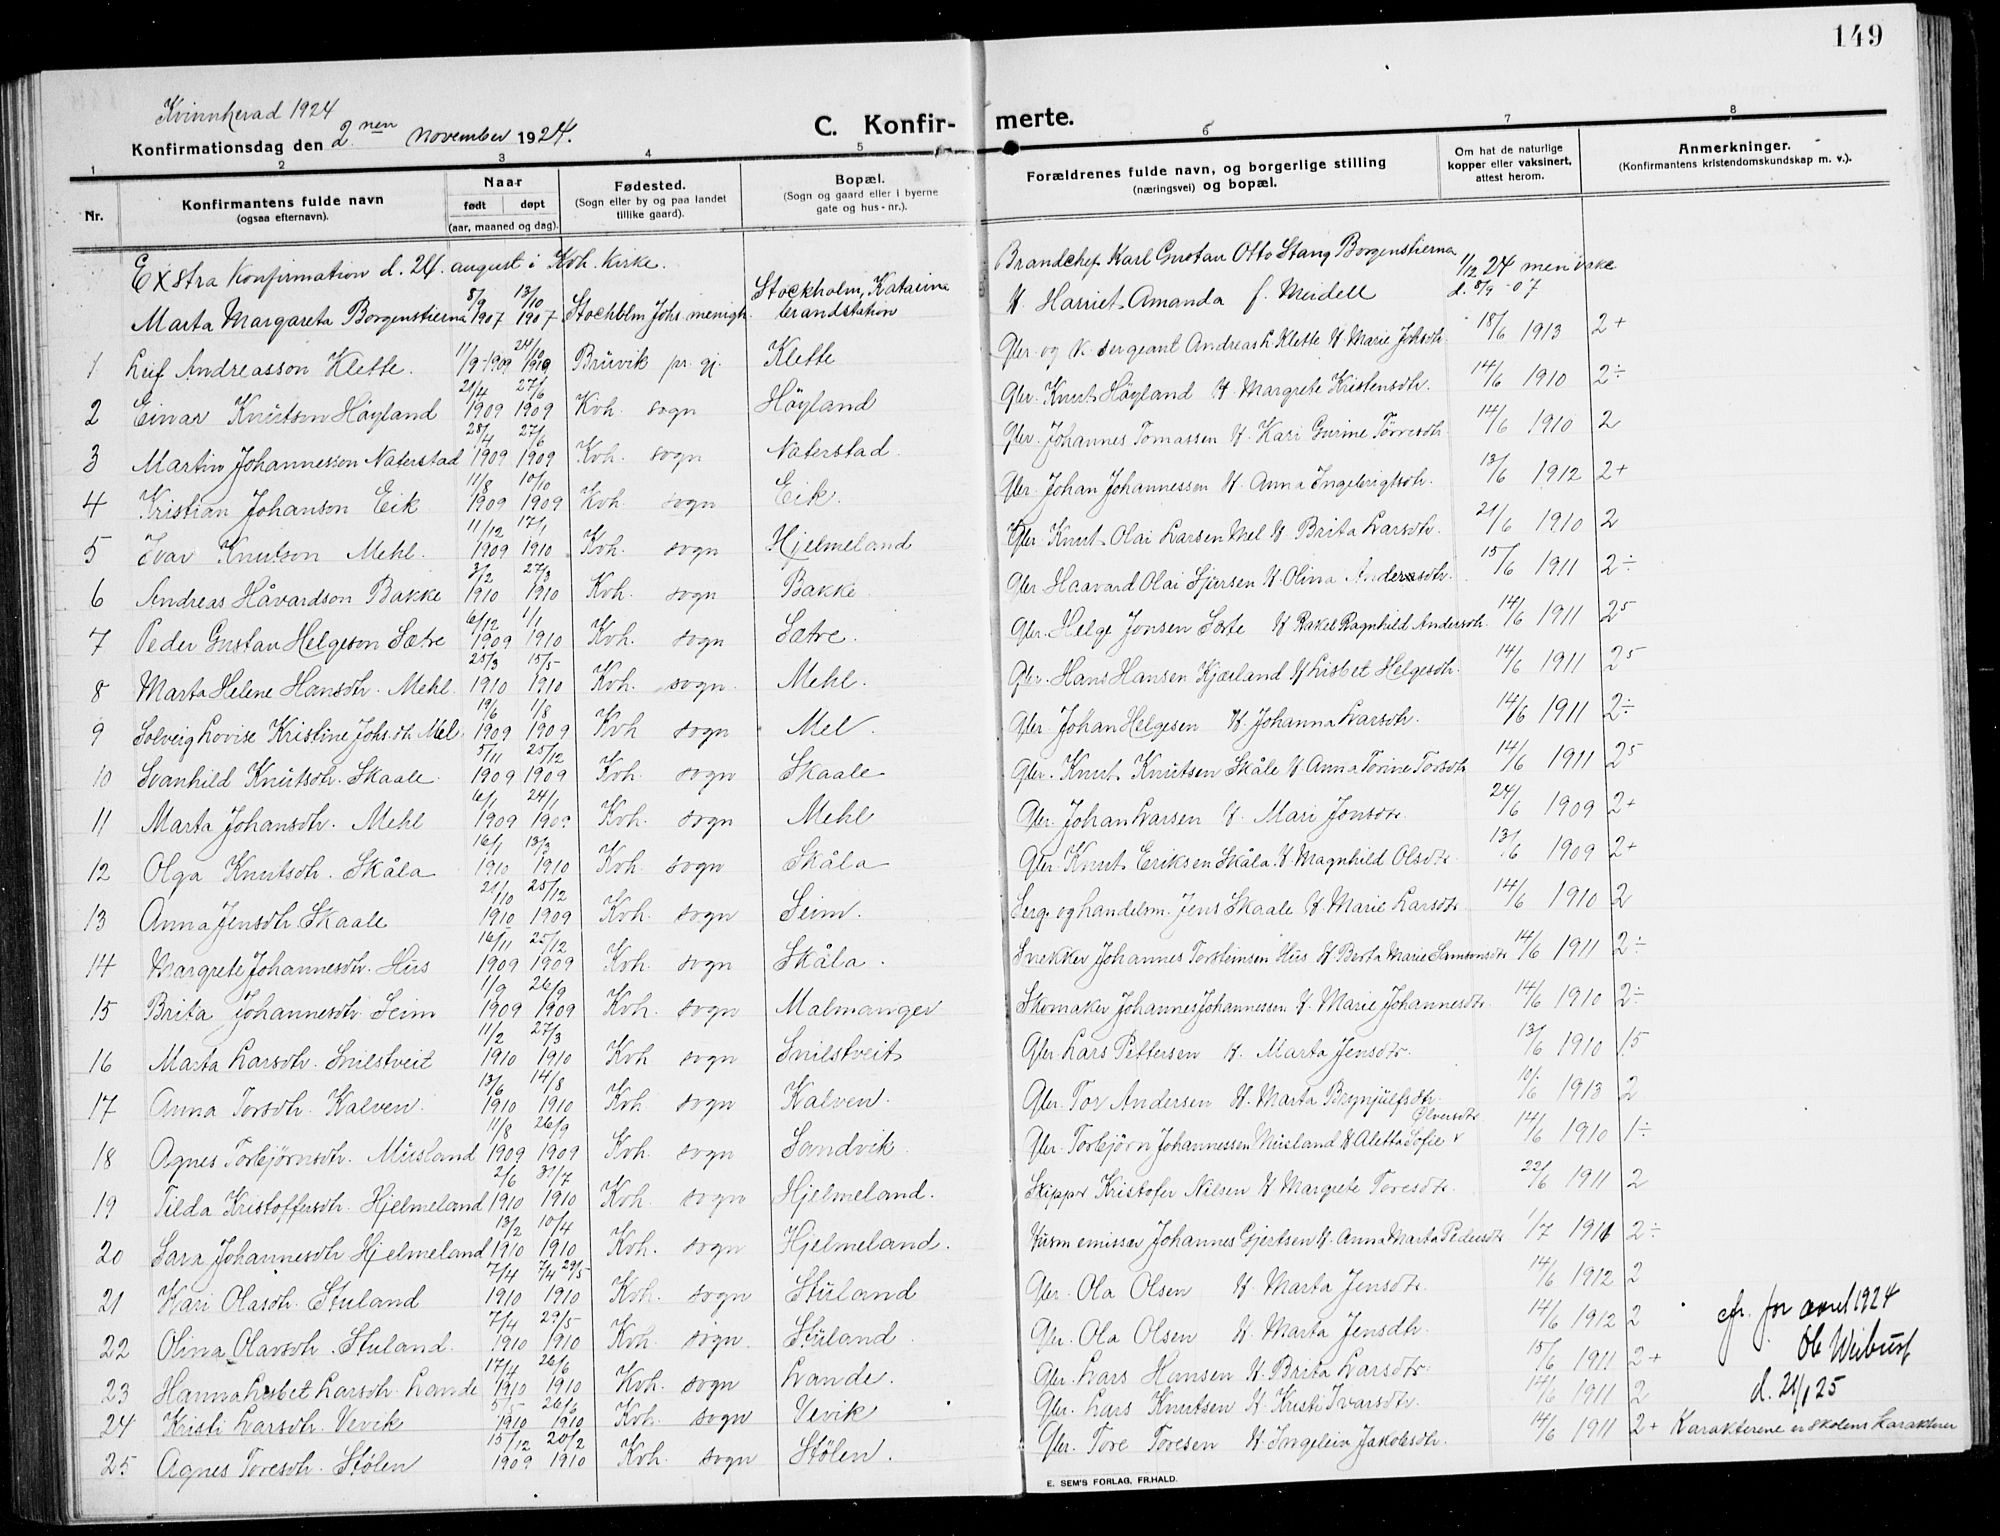 149
Kvinnherad 1924
Konfirmationsdag den 2nen november 1924.
C. Konfir- merte.
1 2 3 4 5 6 7 8
Nr.
Konfirmantens fulde navn
(ogsaa efternavn).
Naar
født døpt
(aar, maaned og dag).
Fødested.
(Sogn eller by og paa landet
tillike gaard).
Bopæl.
(Sogn og gaard eller i byerne
gate og hus-nr.).
Forældrenes fulde navn, og borgerlige stilling
(næringsvei) og bopæl.
Om hat de naturlige
kopper eller vaksinert,
attest herom.
Anmerkninger.
(Konfirmantens kristendomskundskap m. v.).
Exstra Konfirmation d. 24. august i Kvh. kirke.
Marta Margareta Borgenstierna 8/9 1907 13/10 1907 Stochblm Johs. menigh. Stockholm, Katarina brandstation Brandchef Karl Gustav Otto Stang Borgenstierna & Harriet Amanda f. Meidell 1/12 24 men ikke d. 8/9 -07
1 Leif Andreasson Klette. 11/9-1909 24/10 1909 Bruvik pr. gj. Klette Gbr. og v. sergeant Andreas L Klette & Marie Johsdtr. 18/6 1913 2+
2 Einar Knutson Høyland 21/4 1909 27/6 1909 Kvh. sogn Høyland Gbr. Knut Høyland & Margrete Kristensdtr. 14/6 1910 2÷
3 Martin Johannesson Naterstad 28/4 1909 27/6 1909 Kvh. sogn Naterstad. Gbr. Johannes Tomassen & Kari Gurine Tørresdtr. 14/6 1910 2
4 Kristian Johanson Eik 11/8 1909 10/10 1909 Kvh. sogn Eik. Gbr. Johan Johannessen & Anna Ingebrigtsdtr. 13/6 1912 2+
5 Ivar Knutson Mehl. 11/12 1909 17/1 1910 Kvh. sogn Hjelmeland Gbr. Knut Olai Larsen Mel & Brita Larsdtr. 21/6 1910 2
6 Andreas Håvardson Bakke 3/2 1910 27/3 1910 Kvh. sogn Bakke Gbr Haavard Olai Sjursen & Olina Andersdtr. 15/6 1911 2÷
7 Peder Gustav Helgeson Sætre 6/12 1909 1/1 1910 Kvh. sogn Sætre. Gbr. Helge Jonsen Sæte & Rakel Ragnhild Andersdtr. 14/6 1911 25
8 Marta Helene Hansdtr. Mehl. 25/3 1910 15/5 1910 Kvh. sogn. Mehl. Gbr. Hans Hansen Kjærland & Lisbet Helgesdtr. 14/6 1911 25
9 Solveig Lovise Kristine Johs.dtr. Mel. 19/6 1909 1/8 1909 Kvh sogn Mel. Gbr Johan Helgesen & Johanna Larsdtr. 14/6 1911 2÷
10 Svanhild Knutsdtr. Skaale. 5/11 1909 25/12 1909 Kvh. sogn Skaale Gbr. Knut Knutsen Skåle & Anna Torine Torsdtr 14/6 1911 25
11 Marta Johansdtr. Mehl 6/1 1909 24/1 1909 Kvh. sogn Mehl Gbr. Johan Larsen & Mari Jonsdtr. 24/6 1909 2+
12 Olga Knutsdtr. Skåla 16/1 1910 13/3 1910 Kvh. sogn Skåla Gbr. Knut Eriksen Skåla. & Magnhild Olsdtr. 13/6 1909 2+
13 Anna Jensdtr. Skaale 21/10 1910 25/12 1909 Kvh. sogn Seim. Serg. og handelsm. Jens Skaale & Marie Larsdtr. 14/6 1910 2
14 Margrete Johannesdtr. Hus 16/11 1909 25/12 1909 Kvh. sogn Skåla. Snekker Johannes Torsteinsen Hus & Berta Marie Samsonsdtr 14/6 1911 2÷
15 Brita Johannesdtr. Seim 1/9 1909 26/9 1909 Kvh. sogn Malmanger Skomaker Johannes Johannessen & Marie Johannesdtr. 14/6 1910 2÷
16 Marta Larsdtr. Snilstveit 11/2 1910 27/3 1910 Kvh sogn Snilstveit Gbr. Lars Pettersen & Marta Jensdtr. 13/6 1910 1.5
17 Anna Torsdtr. Kalven. 13/6 1910 14/8 1910 Kvh. sogn Kalven. Gbr. Tor Andersen & Marta Brynjulfsdtr. 1913 2
18 Agnes Torbjørnsdtr. Musland 11/8 1909 26/9 1909 Kvh. sogn Sandvik. Gbr. Torbjørn Johannessen Musland & Aletta Sofie Ølversdtr. 14/6 1910 1÷
19 Tilda Kristoffersdtr. Hjelmeland 2/6 1910 31/7 1910 Kvh. sogn Hjelmeland. Skipper Kristofer Nilsen & Margrete Toresdtr. 22/6 1911 2
20 Sara Johannesdtr Hjelmeland 13/2 1910 10/4 1910 Kvh. sogn Hjelmeland. emissær Johannes Gjertsen & Anna Marta Pedersdtr 1/7 1911 2÷
21 Kari Olasdtr. Stuland 7/4 1910 7/4 29/5 1910 Kvh. sogn Stuland Gbr. Ola Olsen & Marta Jensdtr. 14/6 1912 2
22 Olina Olavsdtr. Stuland. 7/4 1910 29/5 1910 Kvh. sogn. Stuland. Gbr. Ola Olsen & Marta Jensdtr. 14/6 1912 2
23 Hanna Lisbet Larsdtr. Lande 17/4 1910 26/6 1910 Kvh. sogn Lande. Gbr. Lars Hansen & Brita Larsdtr. 15/6 1911 2+
24 Kristi Larsdtr. Vevik 5/5 1910 26/6 1910 Kvh. sogn Vevik Gbr. Lars Knutsen & Kristi Ivarsdtr. 14/6 1911 2
25 Agnes Toresdtr. Stølen 15/12 1909 20/2 1910 Kvh. sogn Stølen. Gbr. Tore Toresen & Ingeleiv Jakobsdtr. 14/6 1911 2+ Karakterene er skolens karakterer
for aaret 1924
Ole
E. SEM'S FORLAG, FR.HALD.